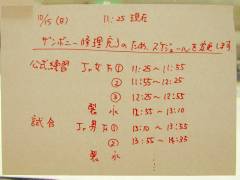 10/15(日) 11:25 現在
ザンボニー修理完了のため、スケジュールを変更します
公式練習 Jr女子① 11:25〜11:55
② 11:55〜12:25
③ 12:25〜12:55
製氷 12:55〜13:10
試合 Jr男子① 13:10〜13:55
② 13:55〜14:35
製氷